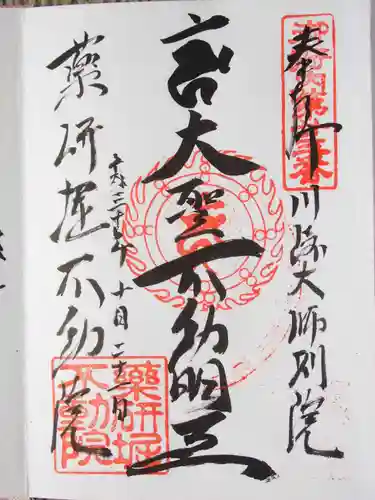 奉拝
川崎大師別院
高大聖不動明王
平成三十年 十月 二十一日
薬研堀不動院
薬研堀
不動院